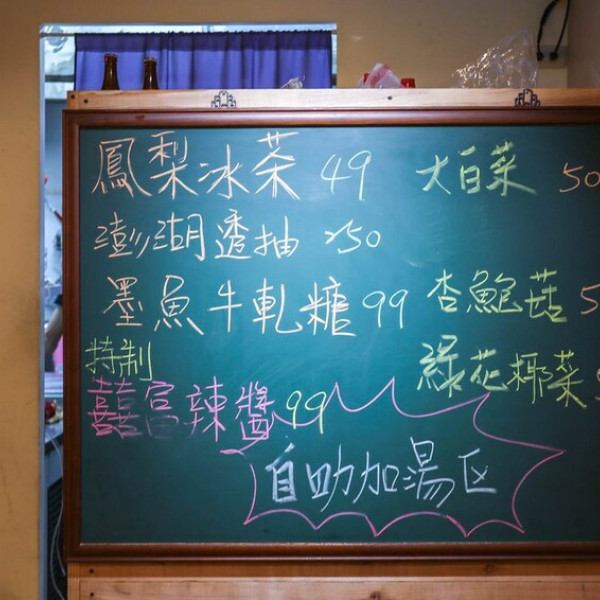 鳳梨冰茶 49
澎湖透抽 250
墨魚牛軋糖 99
特制
囍富辣醬 99
大白菜 50
杏鮑菇 5
綠花椰菜
自助加湯区